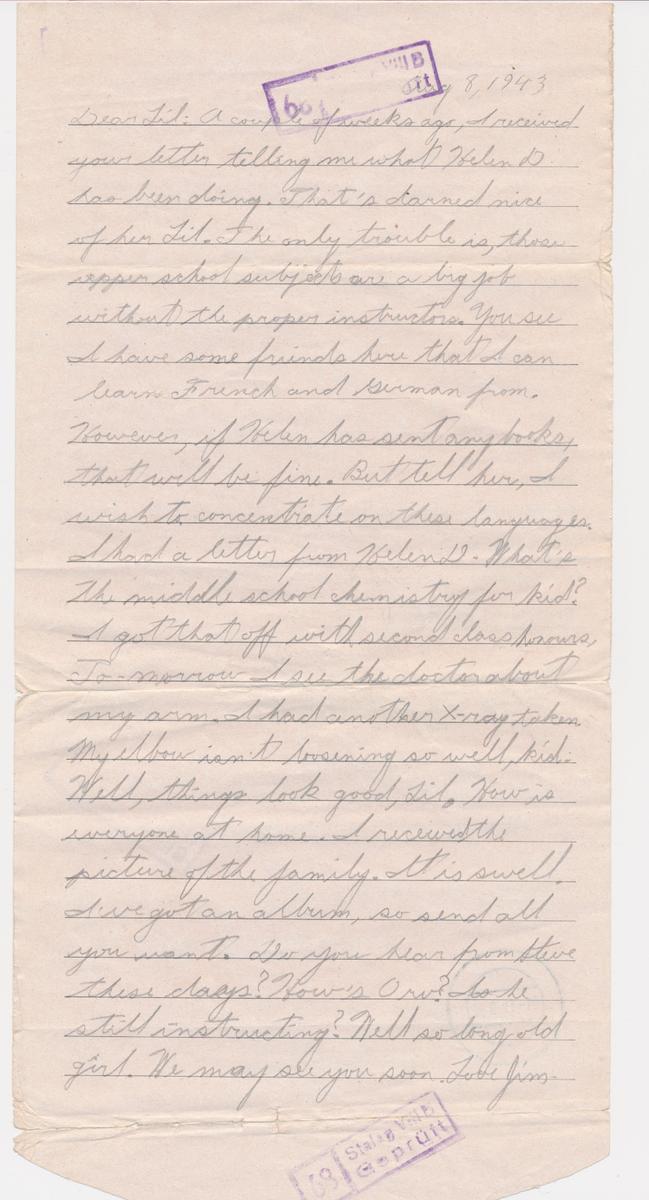 VIII B
68
Aug 8, 1943
Dear Lil: A couple of weeks ago, I received
your letter telling me what Helen D.
has been doing. That's darned nice
of her Lil. The only trouble is, those
upper school subjects are a big job
without the proper instructors. You see
I have some friends here that I can
learn French and German from.
However, if Helen has sent any books,
that will be fine. But tell her, I
wish to concentrate on these languages.
I had a letter from Helen D. What's
the middle school chemistry for kid?
I got that off with second class honours,
To-morrow I see the doctor about
my arm. I had another X-ray taken
My elbow isn't loosening so well, kid.
Well, things look good, Lil. How is
everyone at home. I received the
picture of the family. It is swell.
I've got an album, so send all
you want. Do you hear from Steve
these days? How's Orv? Is he
still instructing? Well so long old
girl. We may see you soon. Love Jim.
68 Stalag VIII B
Geprüft